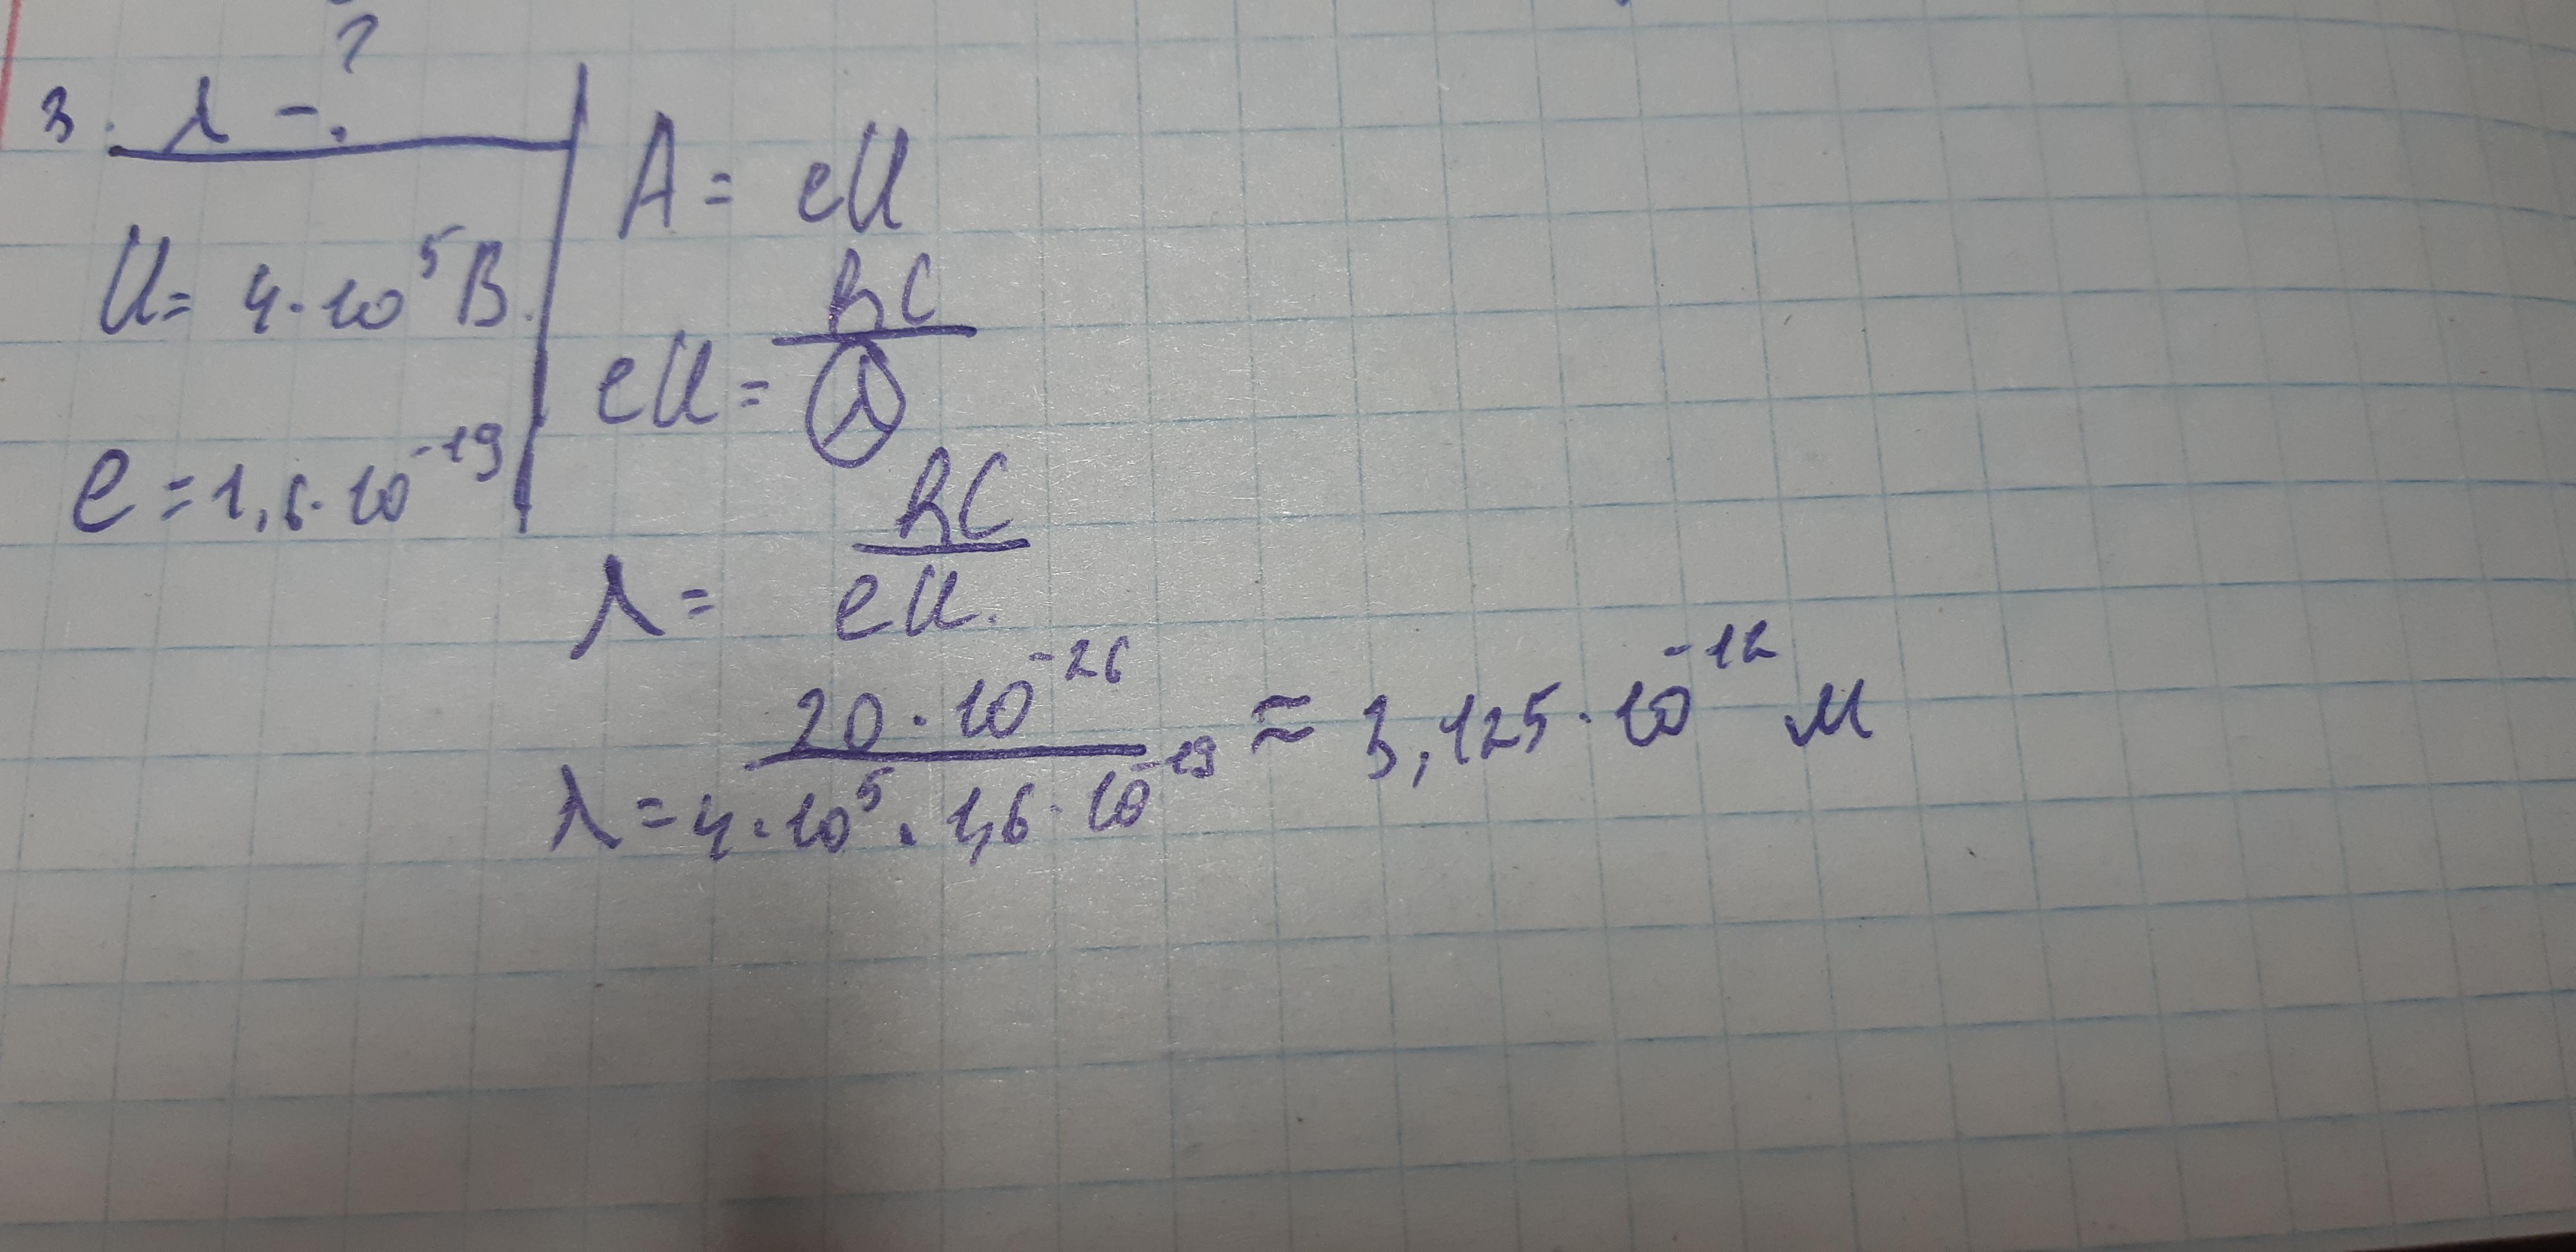 3. λ - ?
U = 4·10⁵ В.
e = 1,6·10⁻¹⁹
A = eU
eU = hc/λ
λ = hc/eU.
λ = 20·10⁻²⁶/4·10⁵·1,6·10⁻¹⁹ ≈ 3,125·10⁻¹² м